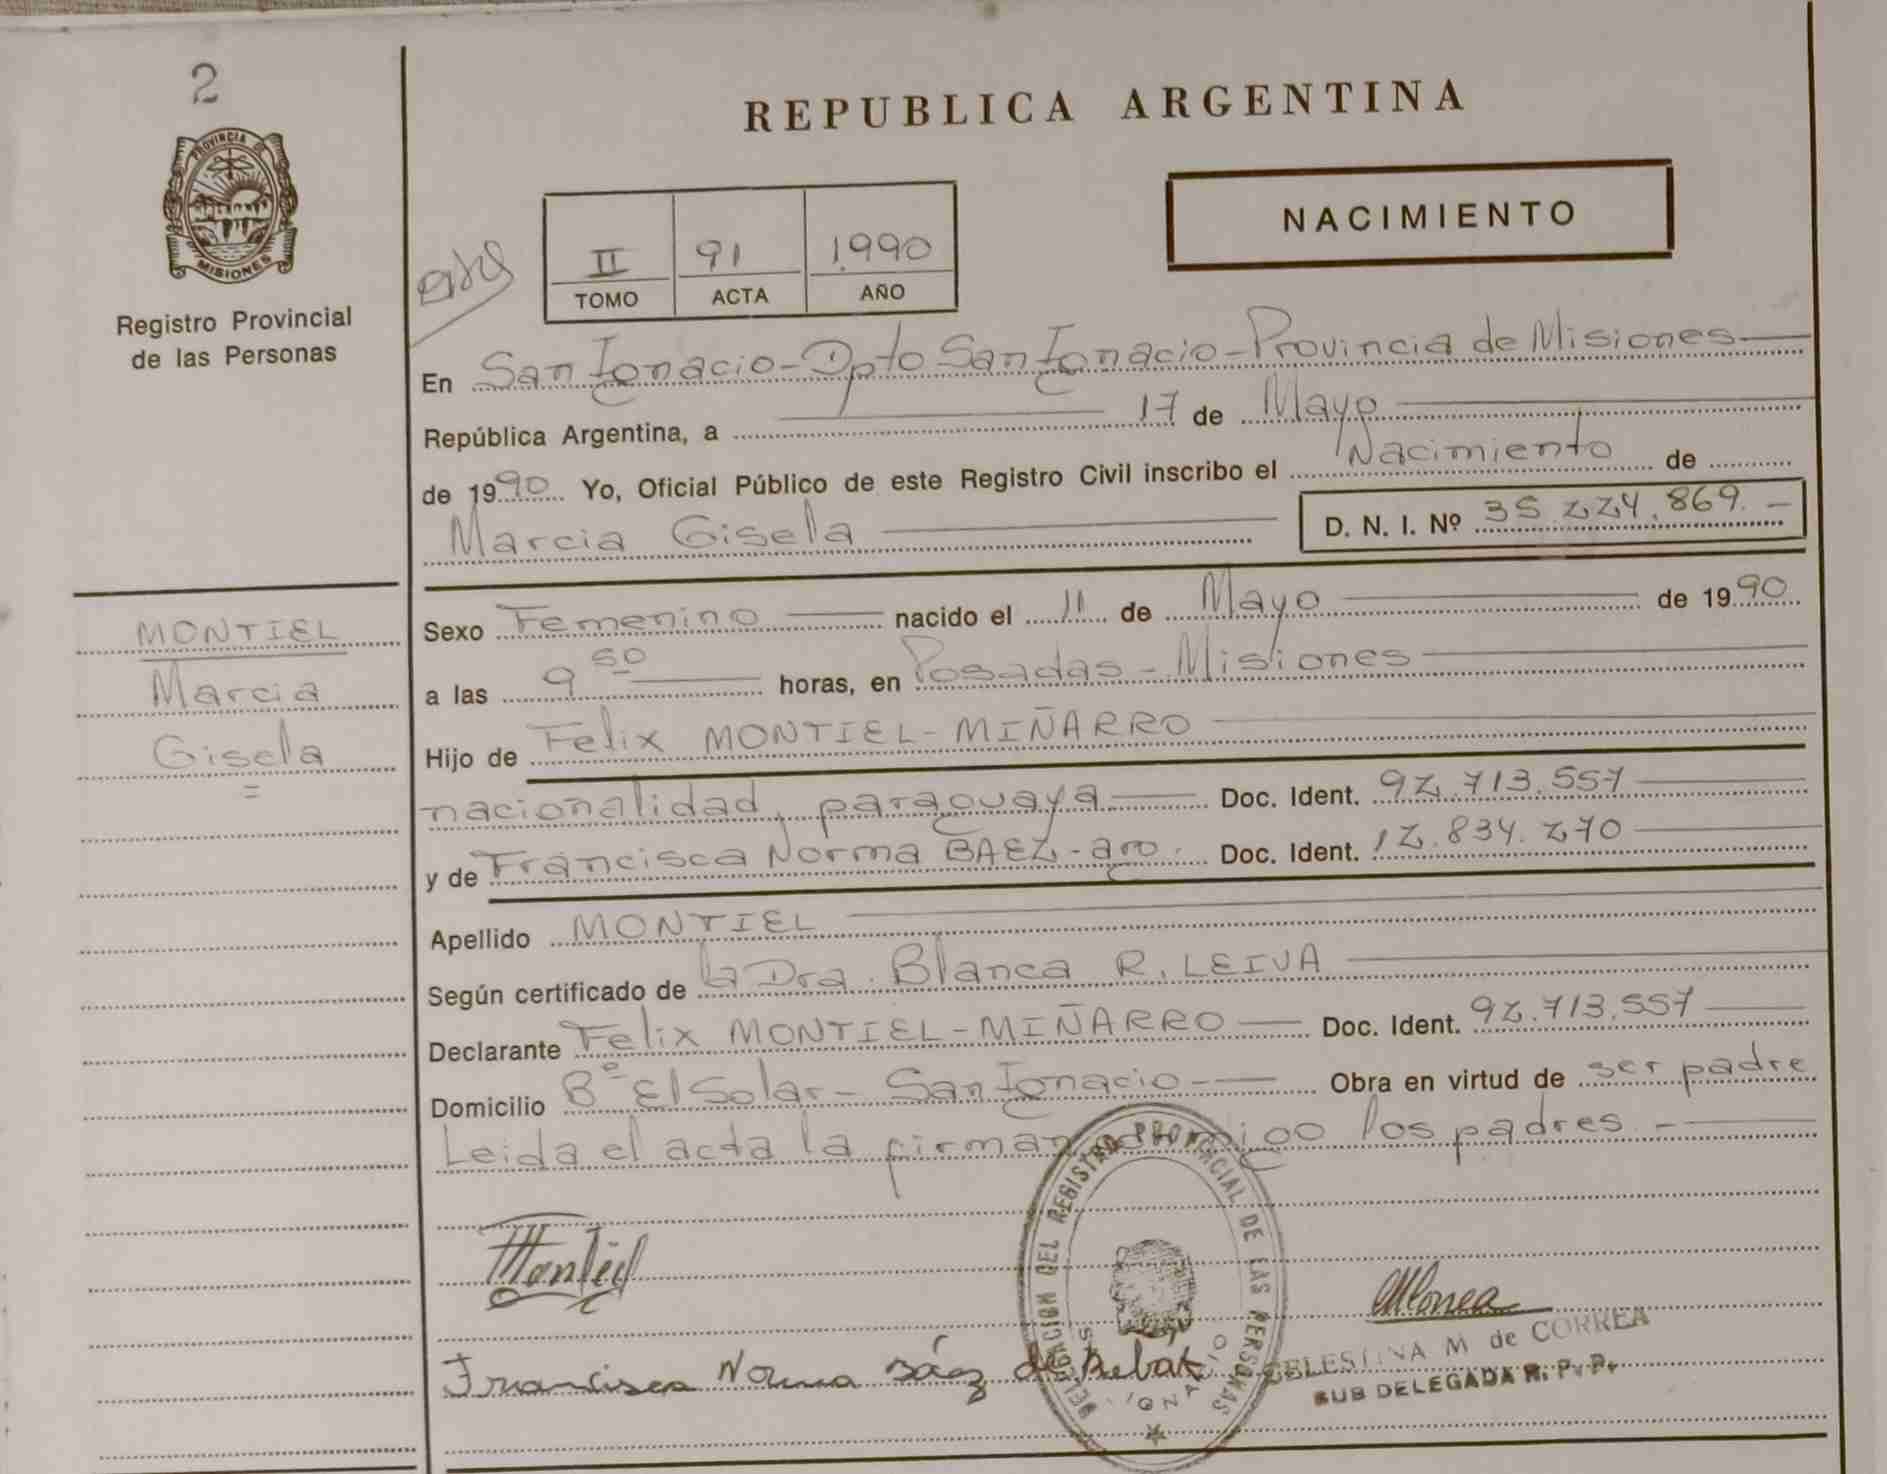 2
PROVINCIA DE
MISIONES
Registro Provincial
de las Personas
REPUBLICA ARGENTINA
NACIMIENTO
II 91 1.990
TOMO ACTA AÑO
En San Ignacio - Dpto San Ignacio - Provincia de Misiones
República Argentina, a 17 de Mayo
de 1990 Yo, Oficial Público de este Registro Civil inscribo el Nacimiento de
Marcia Gisela D. N. I. Nº 35.224.869.-
MONTIEL
Marcia
Gisela
=
Sexo Femenino nacido el 11 de Mayo de 1990
a las 9 50 horas, en Posadas - Misiones
Hijo de Felix MONTIEL - MIÑARRO
nacionalidad paraguaya Doc. Ident. 92.713.557
y de Francisca Norma BAEZ - arg. Doc. Ident. 12.834.270
Apellido MONTIEL
Según certificado de la Dra. Blanca R. LEIVA
Declarante Felix MONTIEL - MIÑARRO Doc. Ident. 92.713.557
Domicilio Bº El Solar - San Ignacio - Obra en virtud de ser padre
Leida el acta la firman conmigo los padres. -
Montiel
DELEGACION DEL REGISTRO PROVINCIAL DE LAS PERSONAS
SAN IGNACIO
Francisca Norma Báez de
CELESTINA M de CORREA
SUB DELEGADA R. P. P.